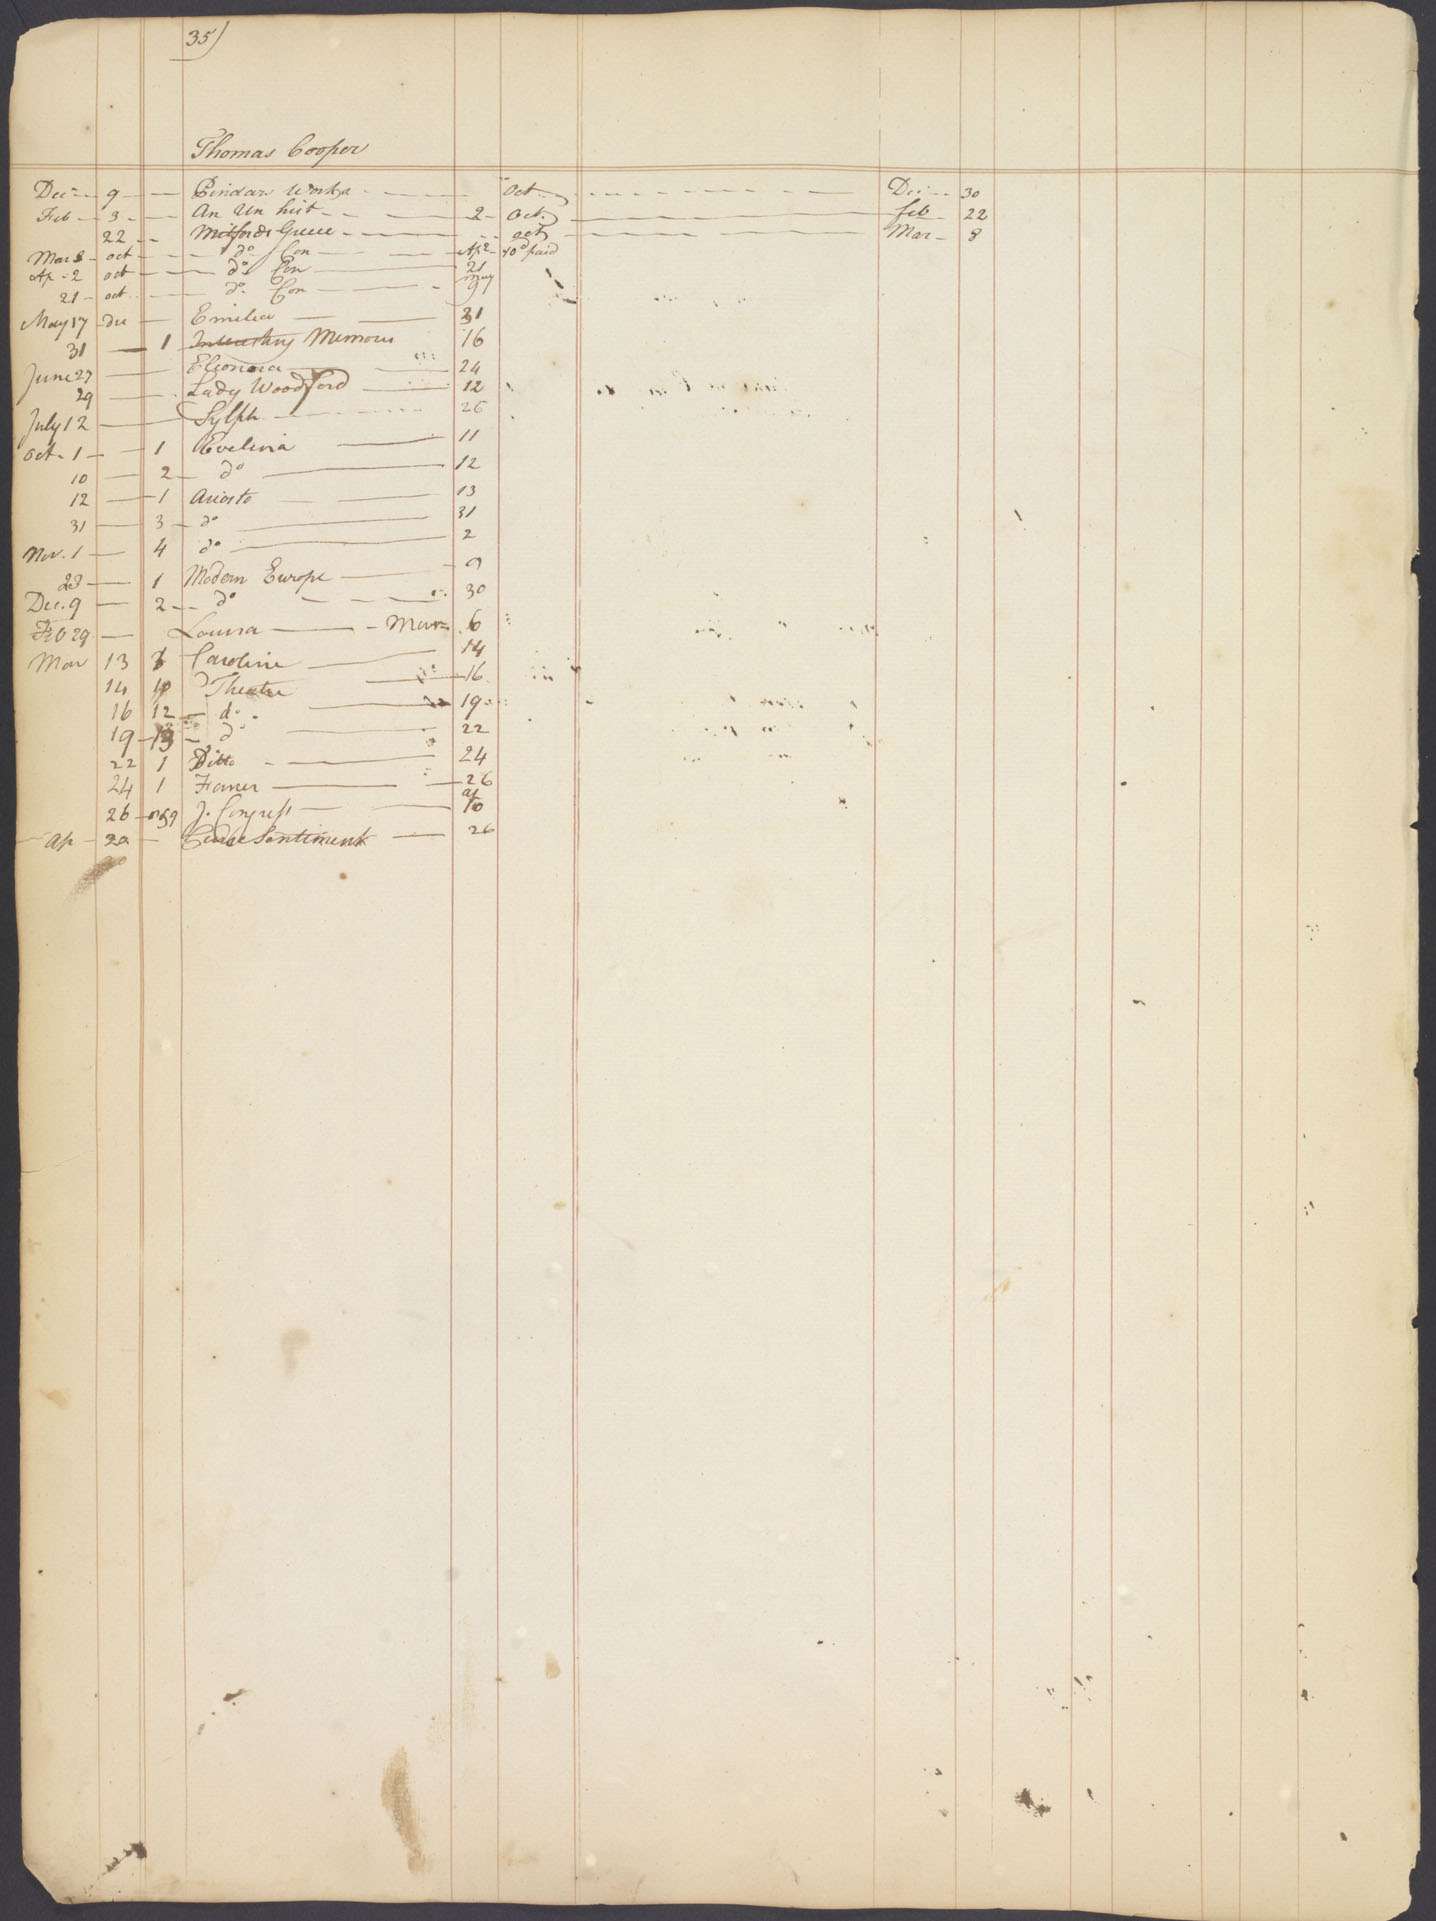 35)
Thomas Cooper
Dec 9 Pindars Works Oct Dec 30
Feb 3 An Un hist 2 Oct feb 22
22 Mitfords Greece oct Mar 8
Mar 8 oct do Con Ap 2 10d paid
Ap 2 oct do Con 21
21 oct do Con may
May 17 du Emilia 31
31 1 Interesting Memoirs 16
June 27 Eleonora 24
29 Lady Woodford 12
July 12 Sylph 26
Oct. 1 1 Evelina 11
10 2 do 12
12 1 Ariosto 13
31 3 do 31
Nov. 1 4 do 2
23 1 Modern Europe 9
Dec. 9 2 do 30
Feb 29 Louisa Mar 6
Mar 13 Caroline 14
14 Theatre 16
16 12 do 19
19 13 do 22
22 1 Ditto 24
24 1 26
26 J. Congress ap 10
Ap 20 Sentiment 26